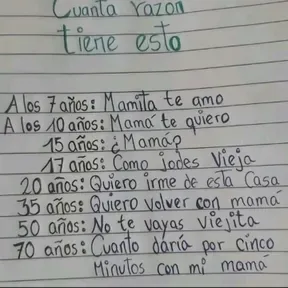 Cuanta razon
tiene esto
A los 7 años: Mamita te amo
A los 10 años: Mamá te quiero
15 años: ¿Mamá?
17 años: Como jodes Vieja
20 años: Quiero irme de esta Casa
35 años: Quiero volver con mamá
50 años: No te vayas viejita
70 años: Cuanto daría por cinco
Minutos con mi mamá